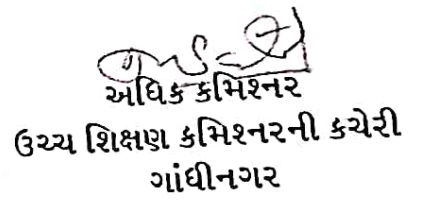 અધિક કમિશ્નર
ઉચ્ચ શિક્ષણ કમિશ્નરની કચેરી
ગાંધીનગર